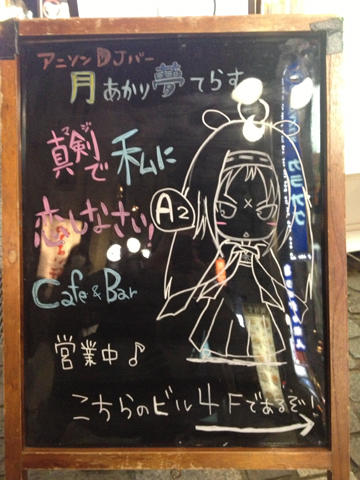 アニソンDJバー
月あかり夢てらす
マジ
真剣で私に
恋しなさい!
A2
Cafe & Bar
営業中♪
こちらのビル4Fであるぞ!